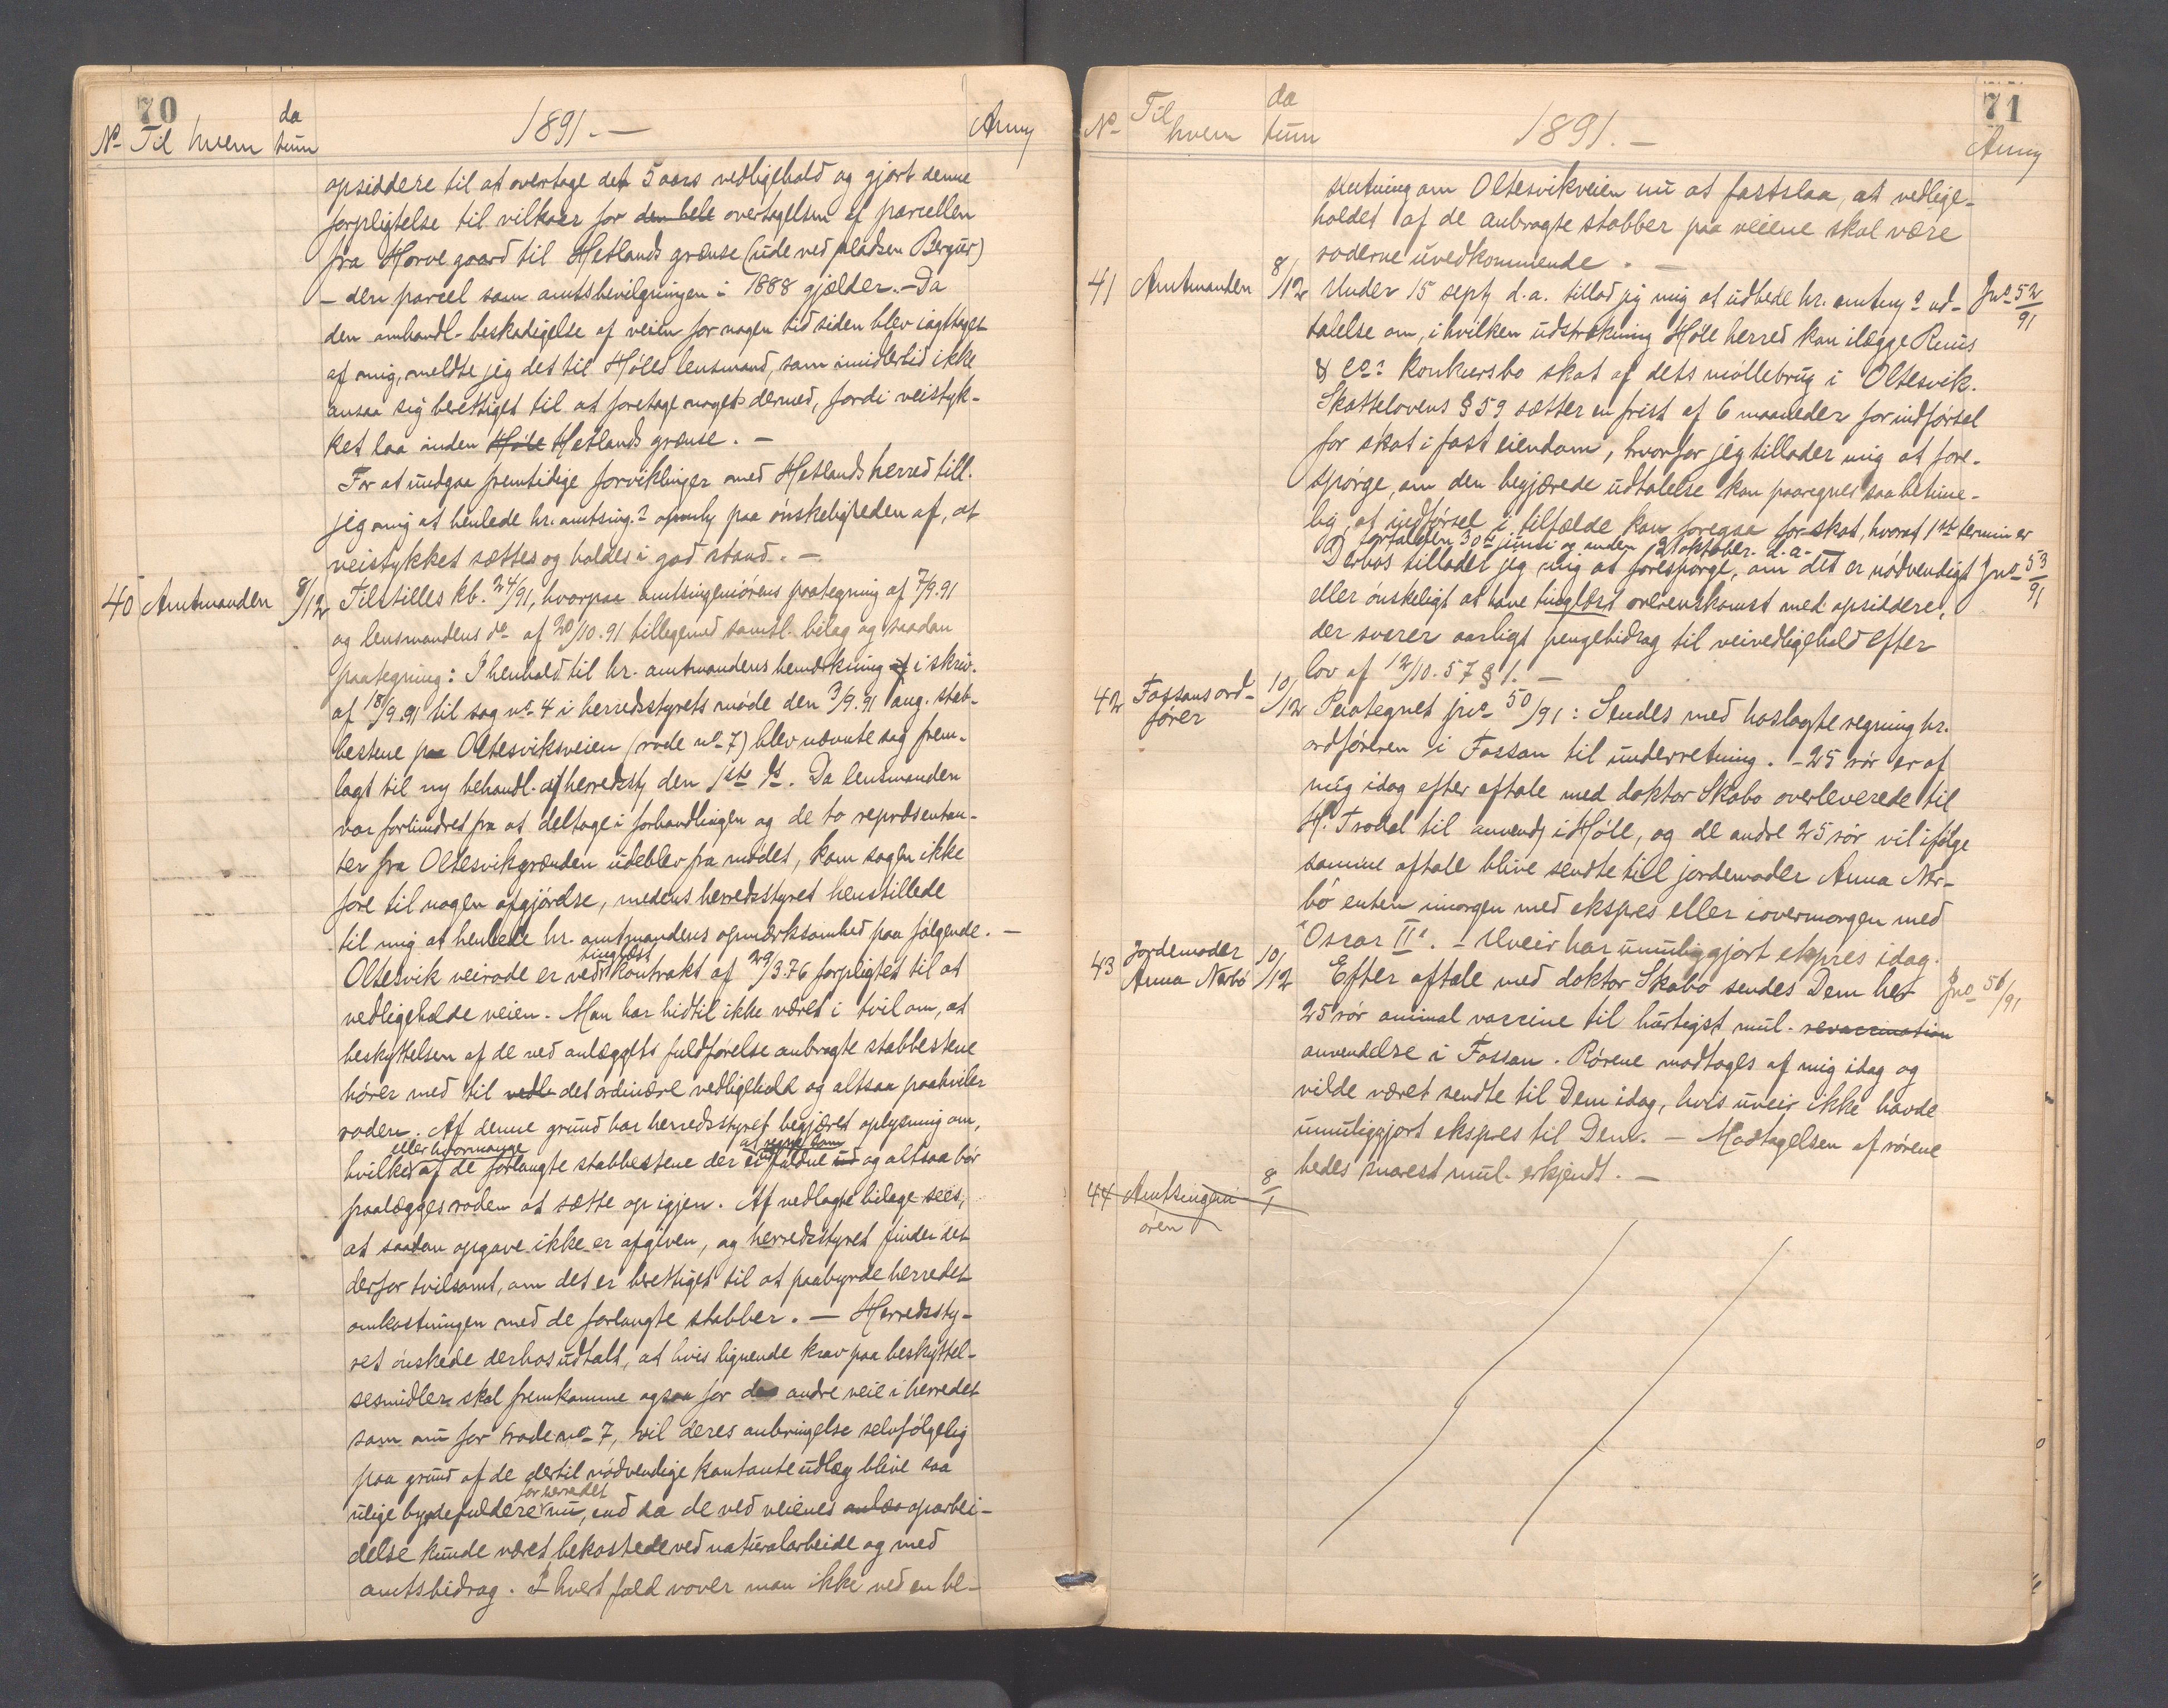 70
No Til hvem da tum 1891. — Anm
opsiddere til at overtage det 5 aars vedligehold og gjort denne
forpligtelse til vilkaar for den hele overtagelsen af parcellen
fra Horve gaard til Hetlands grænse (ude ved pladsen Bergur)
— den parcel som amtsbevilgningen i 1888 gjælder. — Da
den omhandl. beskadigelse af veien for nogen tid siden blev iagttaget
af mig, meldte jeg det til Höles lensmand, som imidlertid ikke
ansaa sig berettiget til at foretage noget dermed, fordi veistyk-
ket laa inden Höle Hetlands grænse. —
For at undgaa fremtidige forviklinger med Hetlands herred till.
jeg mig at henlede hr. amtsing.s opm. paa ønskeligheden af, at
veistykket sættes og holdes i god stand. —
40 Amtmanden 8/12 Tilstilles kb. 24/91, hvorpaa amtsingeniörens paategning af 7/9.91
og lensmandens do af 20/10.91 tilligemed samtl. bilag og saadan
paategning: I henhold til hr. amtmandens bemærkning i skriv.
af 18/9.91 til sag no 4 i herredsstyrets möde den 3/9.91 ang. stab-
bestene paa Oltesviksveien (rode no 7) blev nævnte sag frem-
lagt til ny behandl. af herredsst. den 1ste ds. Da lensmanden
var forhindret fra at deltage i forhandlingen og de to repræsentan-
ter fra Oltesvikgrænden udeblev fra mödet, kom sagen ikke
fore til nogen afgjörelse, medens herredsstyret henstillede
til mig at henlede hr. amtmandens opmærksomhed paa fölgende. —
tinglæst
Oltesvik veirode er ved kontrakt af 29/3.76 forpligtet til at
vedligeholde veien. Man har hidtil ikke været i tvil om, at
beskyttelsen af de ved anlæggets fuldförelse anbragte stabbestene
hörer med til vedl. det ordinære vedligehold og altsaa paahviler
roden. Af denne grund har herredsstyret begjæret oplysning om,
eller hvormange at regne som
hvilke af de forlangte stabbestene der er faldne ud og altsaa bör
paalægges roden at sætte op igjen. Af vedlagte bilage sees,
at saadan opgave ikke er afgiven, og herredsstyret finder det
derfor tvilsomt, om det er berettiget til at paabyrde herredet
omkostningen med de forlangte stabber. — Herredssty-
ret önskede derhos udtalt, at hvis lignende krav paa beskyttel-
sesmidler skal fremkomme ogsaa for de andre veie i herredet
som nu for rode no 7, vil deres anbringelse selvfölgelig
paa grund af de dertil nödvendige kontante udlæg blive saa
for herredet
ulige byrdefuldere nu, end da de ved veienes anlæ oparbei-
delse kunde været bekostede ved naturalarbeide og med
amtsbidrag. I hvert fald vover man ikke ved en be-
71
No Til hvem da tum 1891. — Anm
slutning om Oltesvikveien nu at fastslaa, at vedlige-
holdet af de anbragte stabber paa veiene skal være
roderne uvedkommende. —
41 Amtmanden 8/12 Under 15 sept. d.a. tillod jeg mig at udbede hr. amtm.s ud- Jno 52/91
talelse om, i hvilken udstrækning Höle herred kan ilægge Ruus
& Co: konkursbo skat af dets möllebrug i Oltesvik.
Skattelovens § 59 sætter en frist af 6 maaneder for indförsel
for skat i fast eiendom, hvorfor jeg tillader mig at fore-
spörge, om den begjærede udtalelse kan paaregnes saa betime-
lig, at indförsel i tilfælde kan foregaa for skat, hvoraf 1ste termin er
forfalden 30te juni og anden 12 oktober d.a.
Derhos tillader jeg mig at forespörge, om det er nödvendigt Jno 53/91
eller önskeligt at have tinglæst overenskomst med opsiddere,
der svarer aarligt pengebidrag til veivedligehold efter
lov af 12/10.57 § 1. —
42 Fossans ord- förer 10/12 Paategnet jno 50/91: Sendes med hoslagte regning hr.
ordföreren i Fossan til underretning. — 25 rör er af
mig idag efter aftale med doktor Skabo overleverede til
H. Trodal til anvend. i Höle, og de andre 25 rör vil ifölge
samme aftale blive sendte til jordemoder Anna Nær-
bö enten imorgen med ekspres eller iovermorgen med
"Oscar II". — Uveir har umuliggjort ekspres idag.
43 Jordemoder Anna Nærbö 10/12 Efter aftale med doktor Skabo sendes Dem her Jno 56/91
25 rör animal vaccine til hurtigst mul. revaccination
anvendelse i Fossan. Rörene modtoges af mig idag og
vilde været sendte til Dem idag, hvis uveir ikke havde
umuliggjort ekspres til Dem. — Modtagelsen af rörene
bedes snarest mul. erkjendt. —
44 Amtsingeni ören 8/1